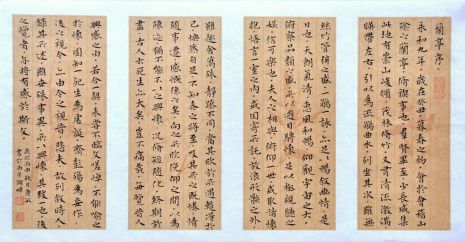 蘭亭序
永和九年歲在癸丑暮春之初會於會稽山
陰之蘭亭脩禊事也群賢畢至少長咸集
此地有崇山峻領茂林脩竹又有清流激湍
暎帶左右引以為流觴曲水列坐其次雖無
絲竹管弦之盛一觴一詠亦足以暢敘幽情是
日也天朗氣清惠風和暢仰觀宇宙之大
俯察品類之盛所以遊目騁懷足以極視聽之
娛信可樂也夫人之相與俯仰一世或取諸懷
抱悟言一室之內或因寄所託放浪形骸之外
雖趣舍萬殊靜躁不同當其欣於所遇暫得於
己快然自足不知老之將至及其所之既惓情
隨事遷感慨係之矣向之所欣俛仰之間以為
陳迹猶不能不以之興懷況脩短隨化終期於
盡古人云死生亦大矣豈不痛哉每覽昔人
興感之由若合一契未嘗不臨文嗟悼不能喻之
於懷固知一死生為虛誕齊彭殤為妄作
後之視今亦由今之視昔悲夫故列敘時人
錄其所述雖世殊事異所以興懷其致一也後
之覽者亦將有感於斯文